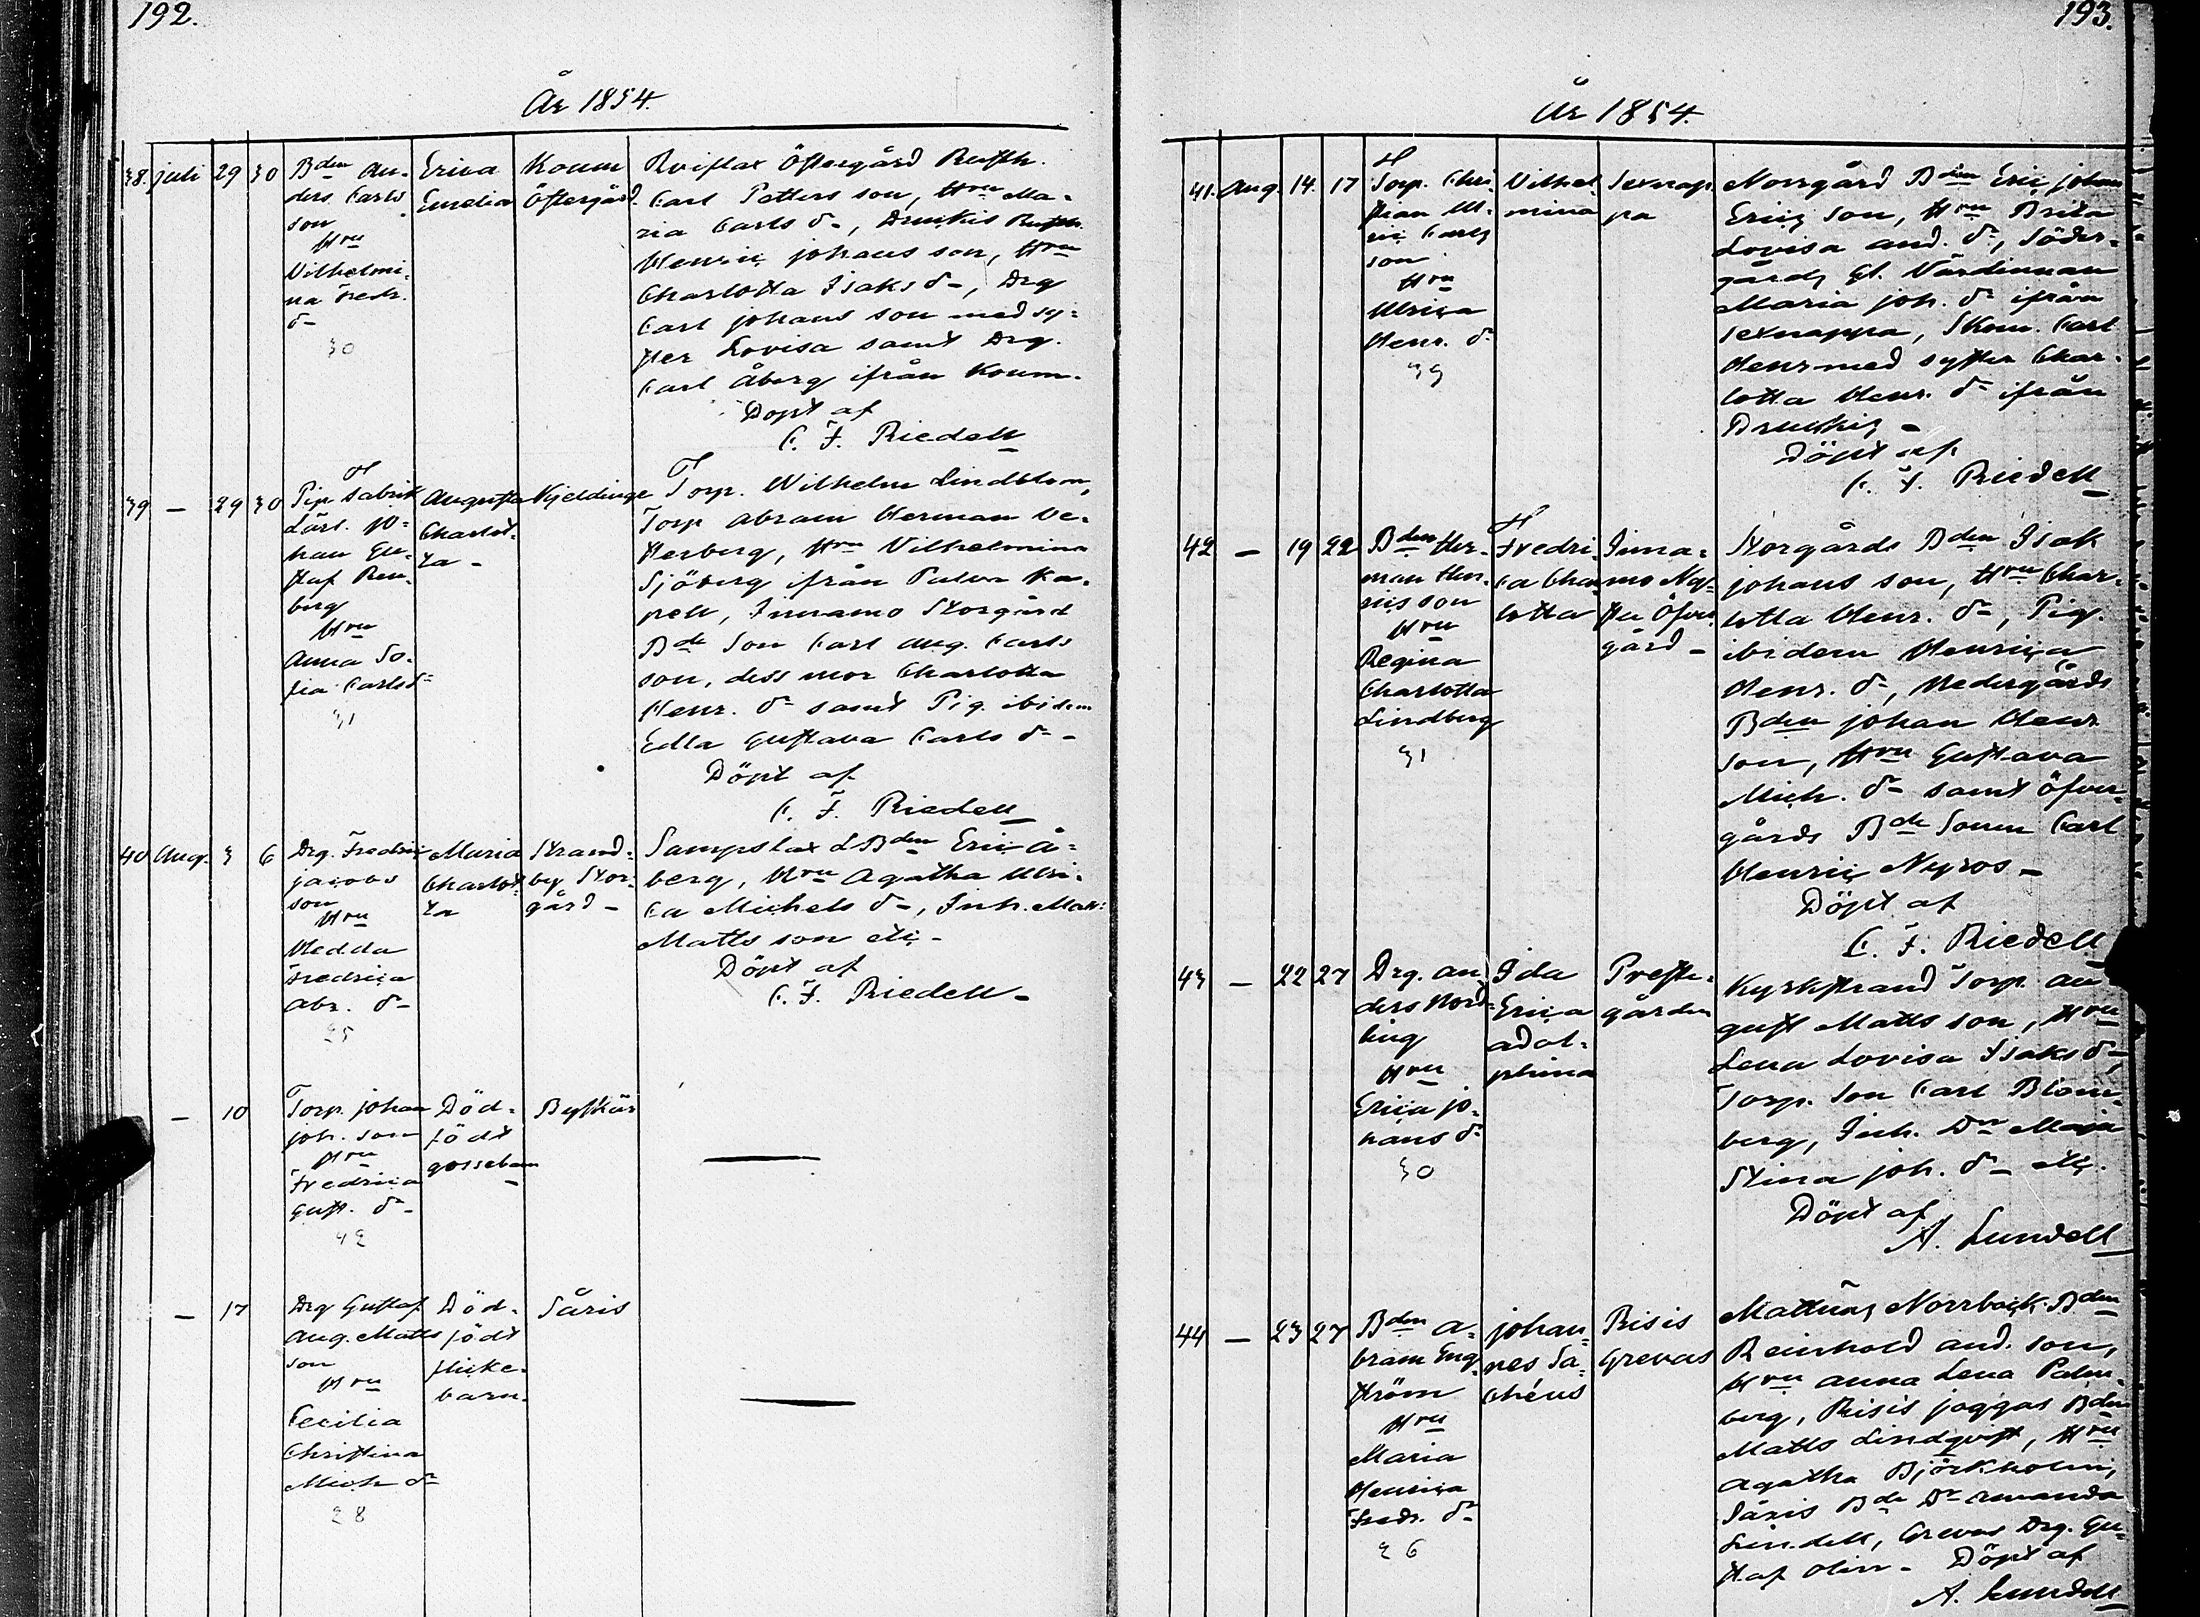 192.
År 1854.
38. juli 29 30
Bden An-
ders Carls
son
Hru
Vilhelmi-
na Fredr.
d-
30
Erica
Emelia
Koum
Östergård
Rviflax Östergård Rusth.
Carl Petters son, Hru Ma-
ria Carls d-, Druckis Rusth.
Henric johans son, Hru
Charlotta Isaks d-, Drg
Carl johans son med sy-
ster Lovisa samt Drg.
Carl Åberg ifrån Koum.
Döpt af
C. F. Riedell
39 - 29 30
Pip fabrik
Lärl. jo-
han Gu-
staf Ren-
berg
Hru
Anna So-
fia Carlsd-
31
Augusta
Charlot-
ta -
Kjeldinge
Torp. Wilhelm Lindblom,
Torp Abram Herman We-
sterberg, Hru Vilhelmina
Sjöberg ifrån Patva Ka-
pell, Innamo Storgård
Bde Son Carl Aug. Carls
son, dess mor Charlotta
Henr. d- samt Pig. ibidem
Edla Gustava Carls d-
Döpt af
C. F. Riedell
40 Aug. 3 6
Drg. Fredric
jacobs
son
Hru
Hedda
Fredrica
Abr. d-
25
Maria
Charlot-
ta
Strand-
by Stor-
gård -
Sampslax LBden Eric Å-
berg, Hru Agatha Ulri-
ca Michels d-, Inh.
Matts son etc -
Döpt af
C. F. Riedell -
- 10
Torp. johan
joh. son
Hru
Fredrica
Gust. d-
42
Död-
födt
gossebarn
-
Byskär
- 17
Drg Gustaf
Aug. Matts
son
Hru
Cecilia
Christina
Mich d-
28
Död-
födt
flicke-
barn.
Såris
193.
År 1854.
41. Aug. 14. 17
Torp. Chri-
stian Ul-
ric Carls
son
Hru
Ulrica
Henr. d-
39
Vilhel-
mina
Sexnap-
pa
Norrgård Bden Eric johan
Erics son, Hru Brita
Lovisa And. d-, Söder-
gårds Gl. Värdinnan
Maria joh. d- ifrån
Sexnappa, Skom. Carl
Henr med syster Char-
lotta Henr. d- ifrån
Druckis -
Döpt af
C. F. Riedell
42 - 19 22
Bden Her-
man Hen-
rics son
Hru
Regina
Charlotta
Lindberg
31
Fredri-
ca Char-
lotta
Inna-
mo Ny-
stu Öfver-
gård -
Storgårds Bden Isak
johans son, Hru Char-
lotta Henr. d-, Pig.
ibidem Henrica
Henr. d-, Nedergårds
Bden johan Henr
son, Hru Gustava
Mich. d- samt Öfver-
gårds Bde Sonen Carl
Henric Nyroos -
Döpt af
C. F. Riedell
43 - 22 27
Drg. An-
ders Nord-
ling
Hru
Erica jo-
hans d-
30
Ida
Erica
Adol-
phina
Preste-
gården
Kyrkstrand Torp. Au-
gust Matts son, Hru
Lena Lovisa Isaks d-,
Torp. Son Carl Blom-
berg, Inh. Dr Maja
Stina joh. d- etc.
Döpt af
A. Lundell
44 - 23 27
Bden A-
bram Eng-
ström
Hru
Maria
Henrica
Fredr. d-
26
johan-
nes Sa-
chéus
Risis
Grevas
Mattnäs Norrback Bden
Reinhold And. son,
Hru Anna Lena Palm-
berg, Risis joggas Bden
Matts Lindqvist, Hru
Agatha Björkholm,
Såris Bde Dr Amanda
Lindell, Grevas Drg. Gu-
staf Olin - Döpt af
A. Lundell